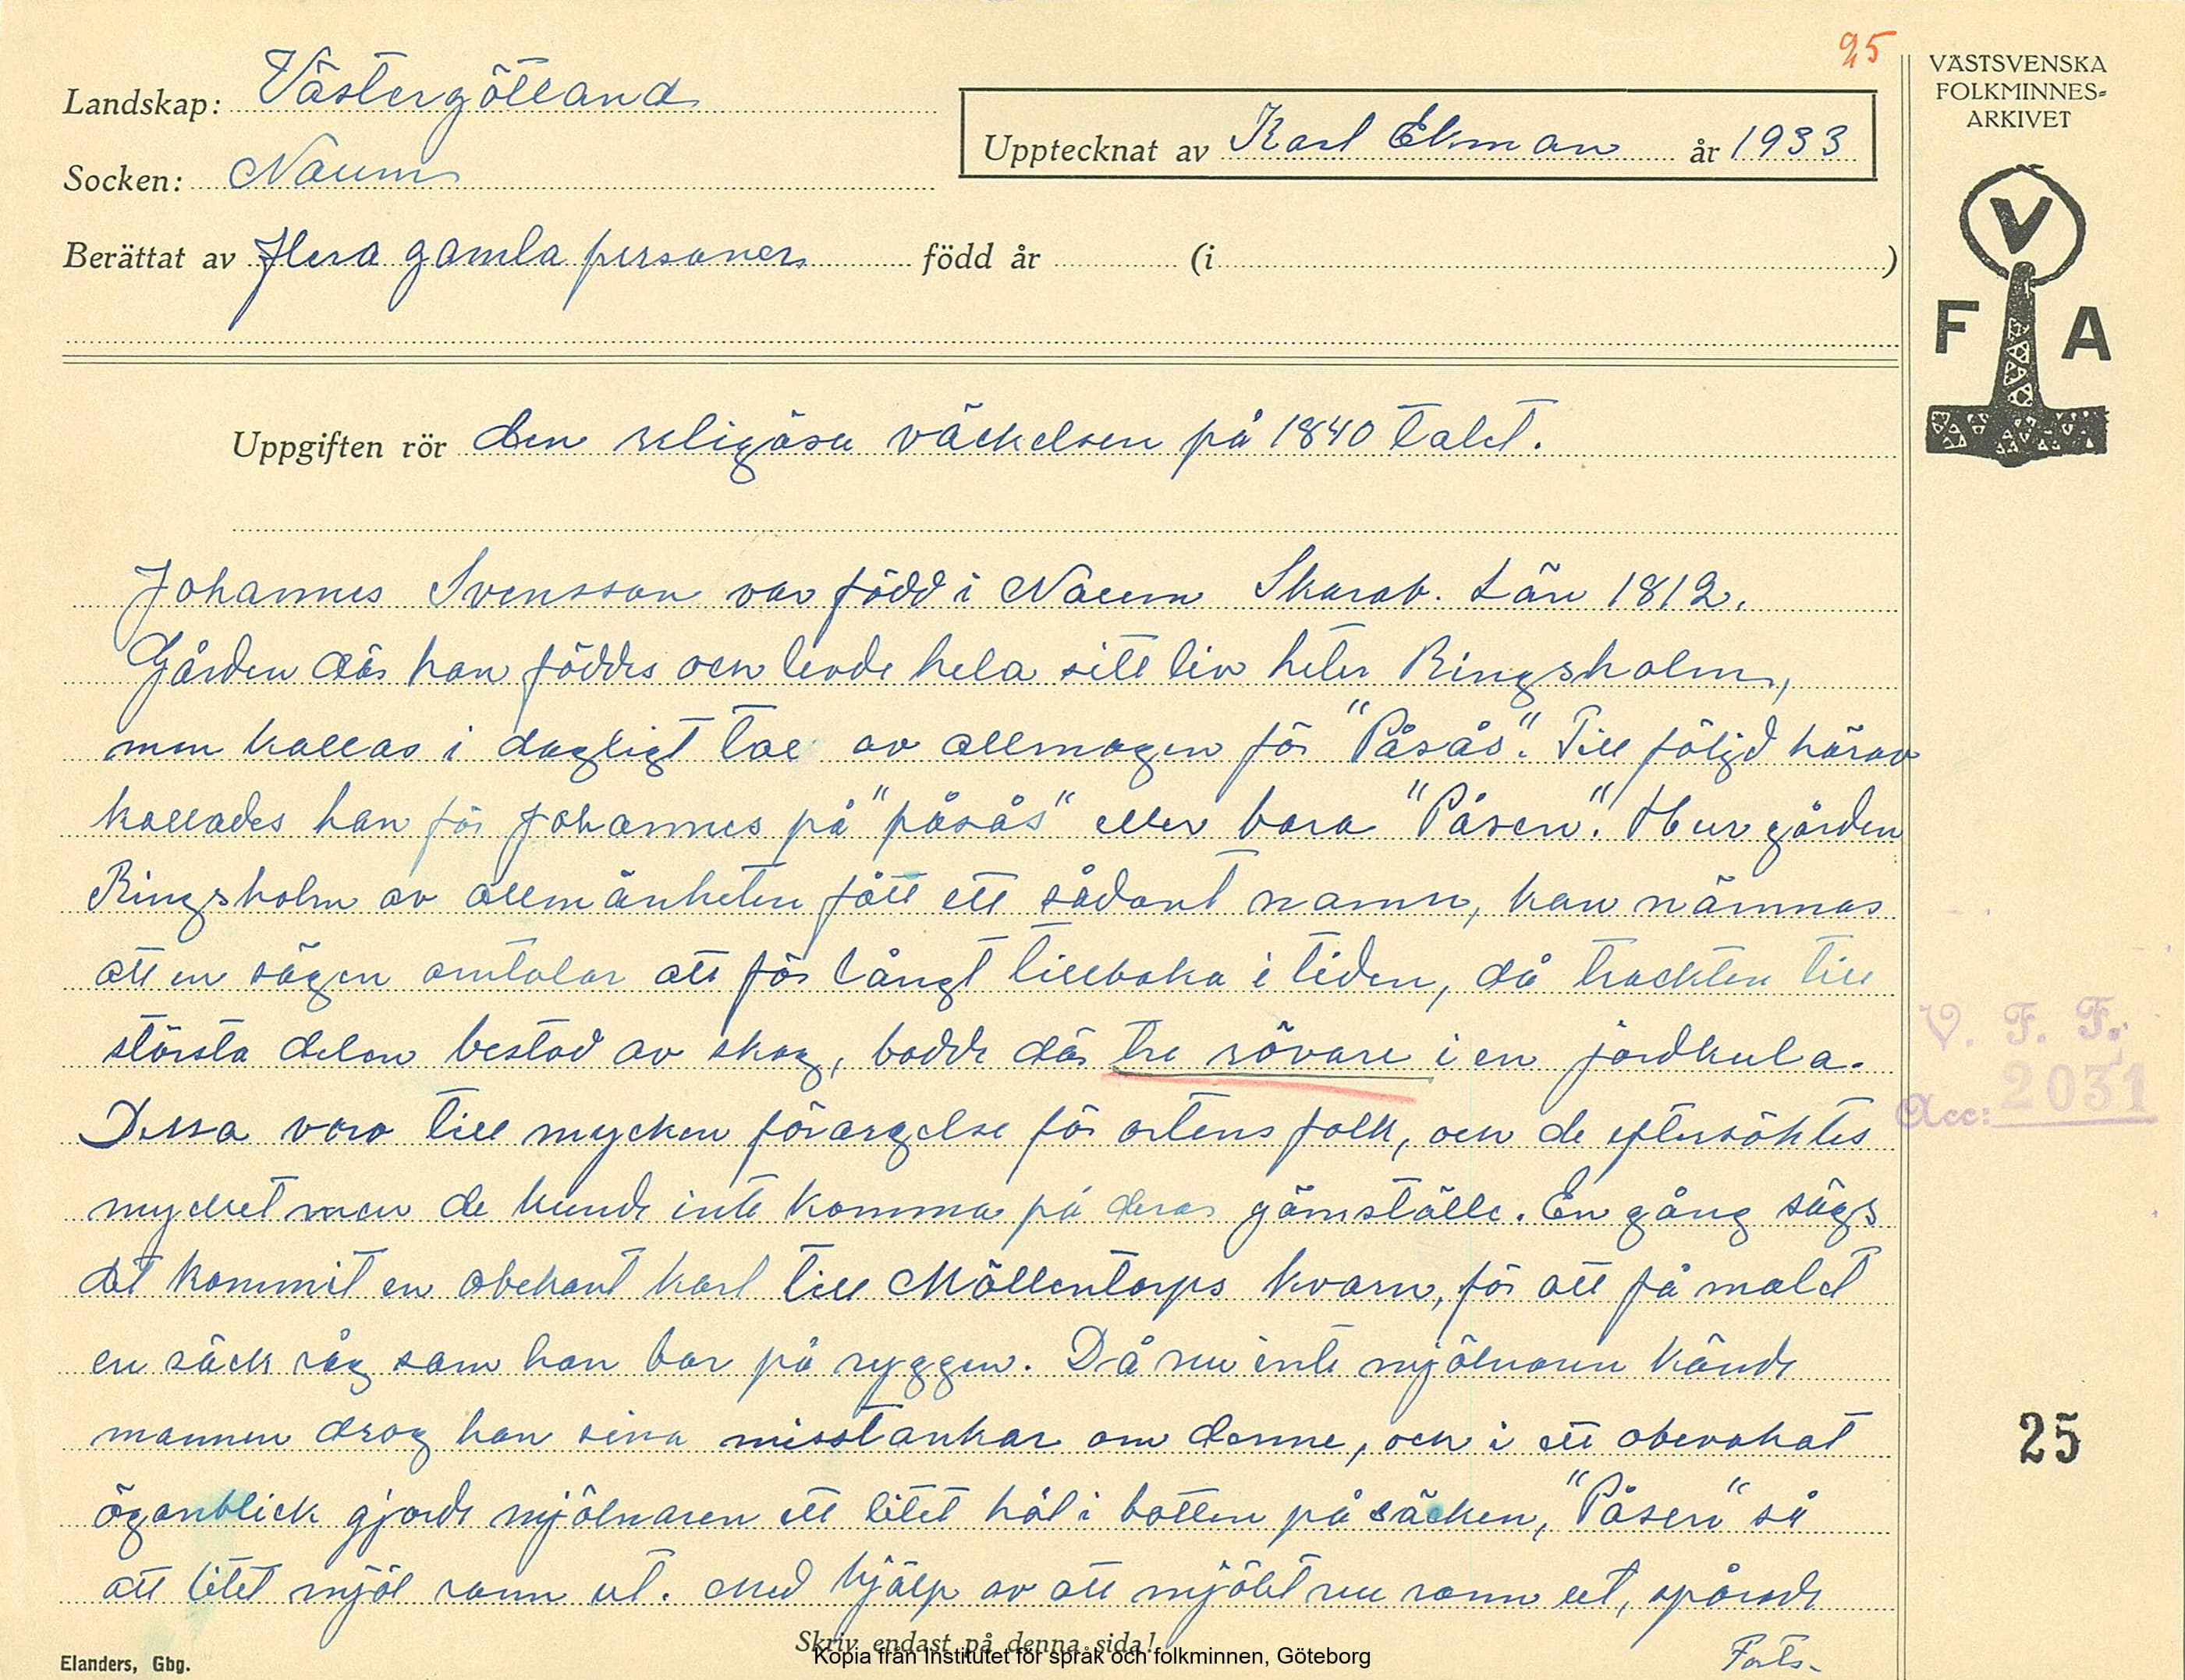 25
VÄSTSVENSKA
FOLKMINNES-
ARKIVET
Landskap: Västergötland
Upptecknat av Karl Ekman år 1933
Socken: Naum
Berättat av Flera gamla personer född år (i )
V
F A
Uppgiften rör den religiösa väckelsen på 1840 talet.
Johannes Svensson var född i Naum Skarab. Län 1812.
Gården där han föddes och levde hela sitt liv heter Ringsholm,
men kallas i dagligt tal av allmogen för "Påsås". Till följd härav
kallades han för Johannes på "påsås" eller bara "Påsen". Hur gården
Ringsholm av allmänheten fått ett sådant namn, kan nämnas
att en sägen omtalar att för långt tillbaka i tiden, då trackten till
största delen bestod av skog, bodde där tre rövare i en jordkula.
Dessa voro till mycken förargelse för ortens folk, och de eftersöktes
mycket men de kunde inte komma på deras gömställe. En gång sägs
det kommit en obekant karl till Mollentorps kvarn, för att få malet
en säck råg som han bar på ryggen. Då nu inte mjölnaren kände
mannen drog han sina misstankar om denne, och i ett obevakat
ögonblick gjorde mjölnaren ett litet hål i botten på säcken, "Påsen" så
att litet mjöl rann ut. Med hjälp av att mjölet nu rann ut, spårade
Forts.
V. F. F.
Acc: 2031
25
Skriv endast på denna sida!
Elanders, Gbg.
Kopia från Institutet för språk och folkminnen, Göteborg